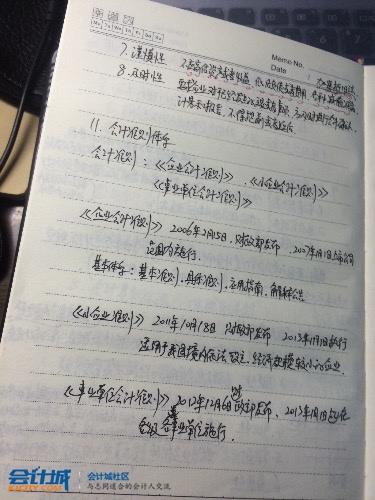 Mo Tu We Th Fr Sa Su
Memo No.
Date
7. 谨慎性 不高估资产或者收益、低估负债或者费用
8. 及时性 要求企业对于已经发生的交易或者事项,
计量和报告,不得提前或者延后
11. 会计准则体系
会计准则:《企业会计准则》、《小企业会计准则》
《事业单位会计准则》
《企业会计准则》2006年2月15日,财政部发布,2007年1月1日上市公司
范围内施行.
基本体系:基本准则,具体准则,应用指南,解释公告
《小企业准则》2011年10月18日 财政部发布 2013年1月1日执行
适用于我国境内依法设立、经济规模较小的企业.
《事业单位会计准则》2012年12月6日财政部发布,2013年1月1日起在
各级各类事业单位施行.
会计城
KJCITY.COM
会计城社区
与志同道合的会计人交流